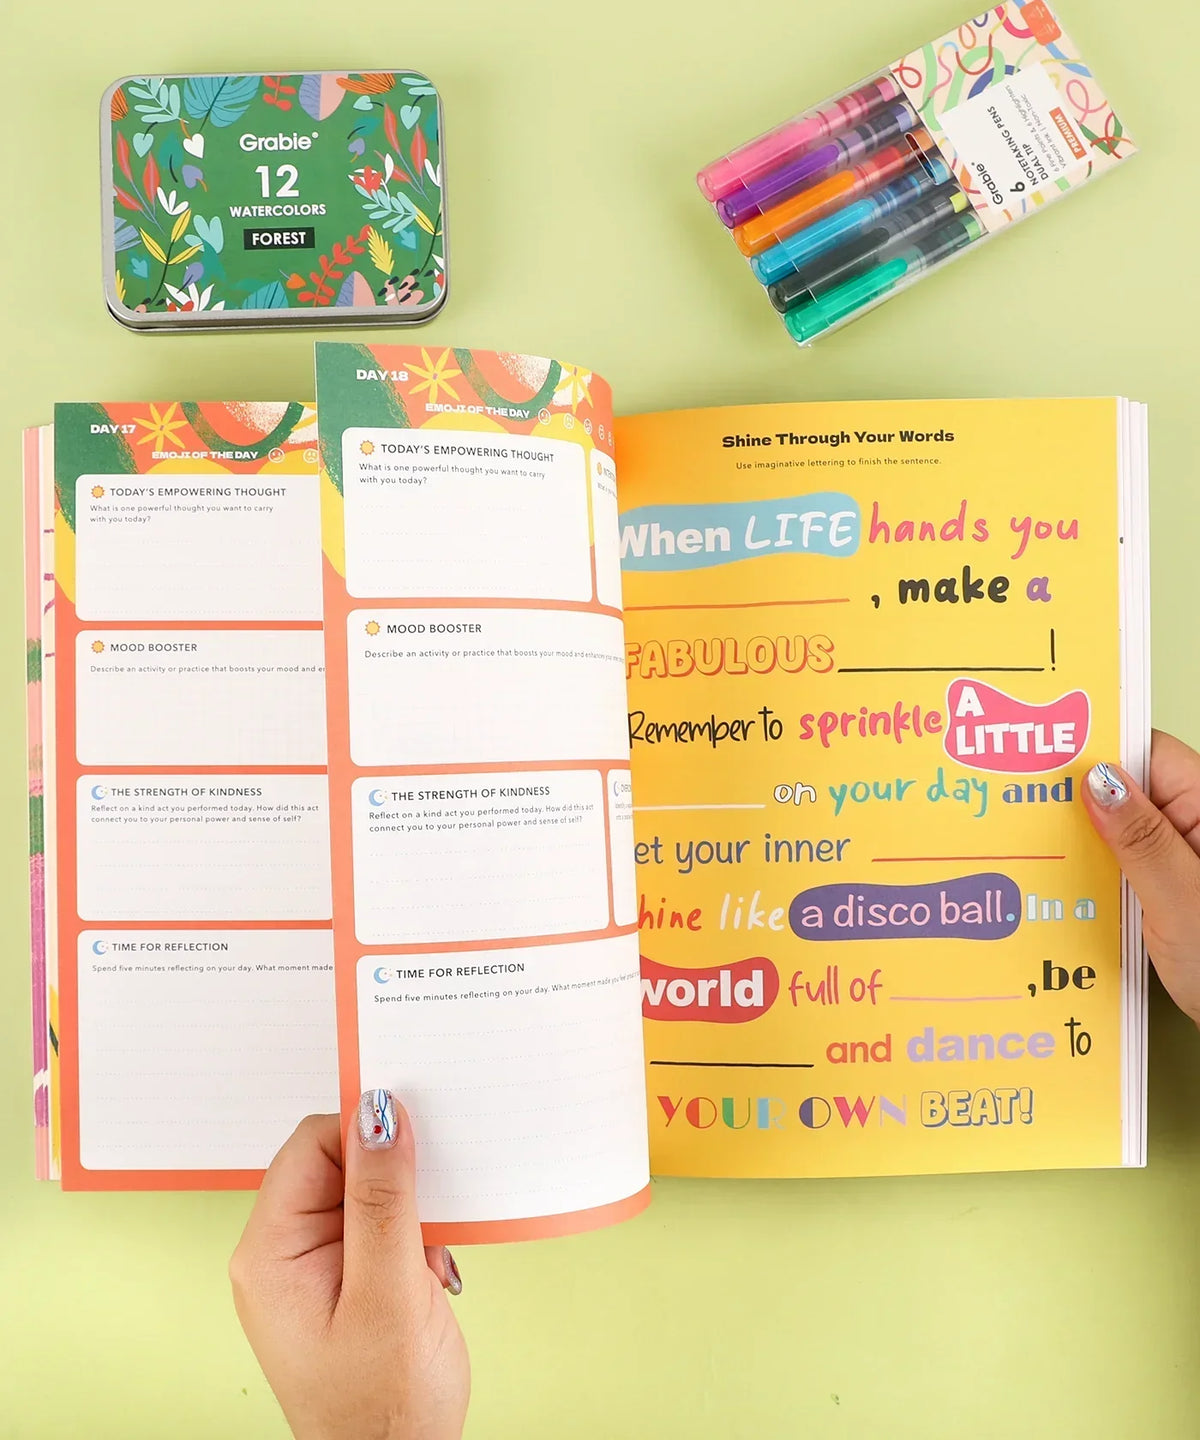 Grabie®
12
WATERCOLORS
FOREST
Grabie®
6
NOTETAKING PENS
DUAL TIP
6 Fine Points & 6 Highlighters
Vibrant Ink | Non-Toxic
PREMIUM
DAY 17
EMOJI OF THE DAY
TODAY'S EMPOWERING THOUGHT
What is one powerful thought you want to carry
with you today?
MOOD BOOSTER
Describe an activity or practice that boosts your mood and
THE STRENGTH OF KINDNESS
Reflect on a kind act you performed today. How did this act
connect you to your personal power and sense of self?
TIME FOR REFLECTION
Spend five minutes reflecting on your day. What moment made
DAY 18
EMOJI OF THE DAY
TODAY'S EMPOWERING THOUGHT
What is one powerful thought you want to carry
with you today?
MOOD BOOSTER
Describe an activity or practice that boosts your mood and
THE STRENGTH OF KINDNESS
Reflect on a kind act you performed today. How did this act
connect you to your personal power and sense of self?
TIME FOR REFLECTION
Spend five minutes reflecting on your day. What moment made you
Shine Through Your Words
Use imaginative lettering to finish the sentence.
When LIFE hands you
, make a
FABULOUS !
Remember to sprinkle A LITTLE
on your day and
et your inner
hine like a disco ball. In a
world full of , be
and dance to
YOUR OWN BEAT!